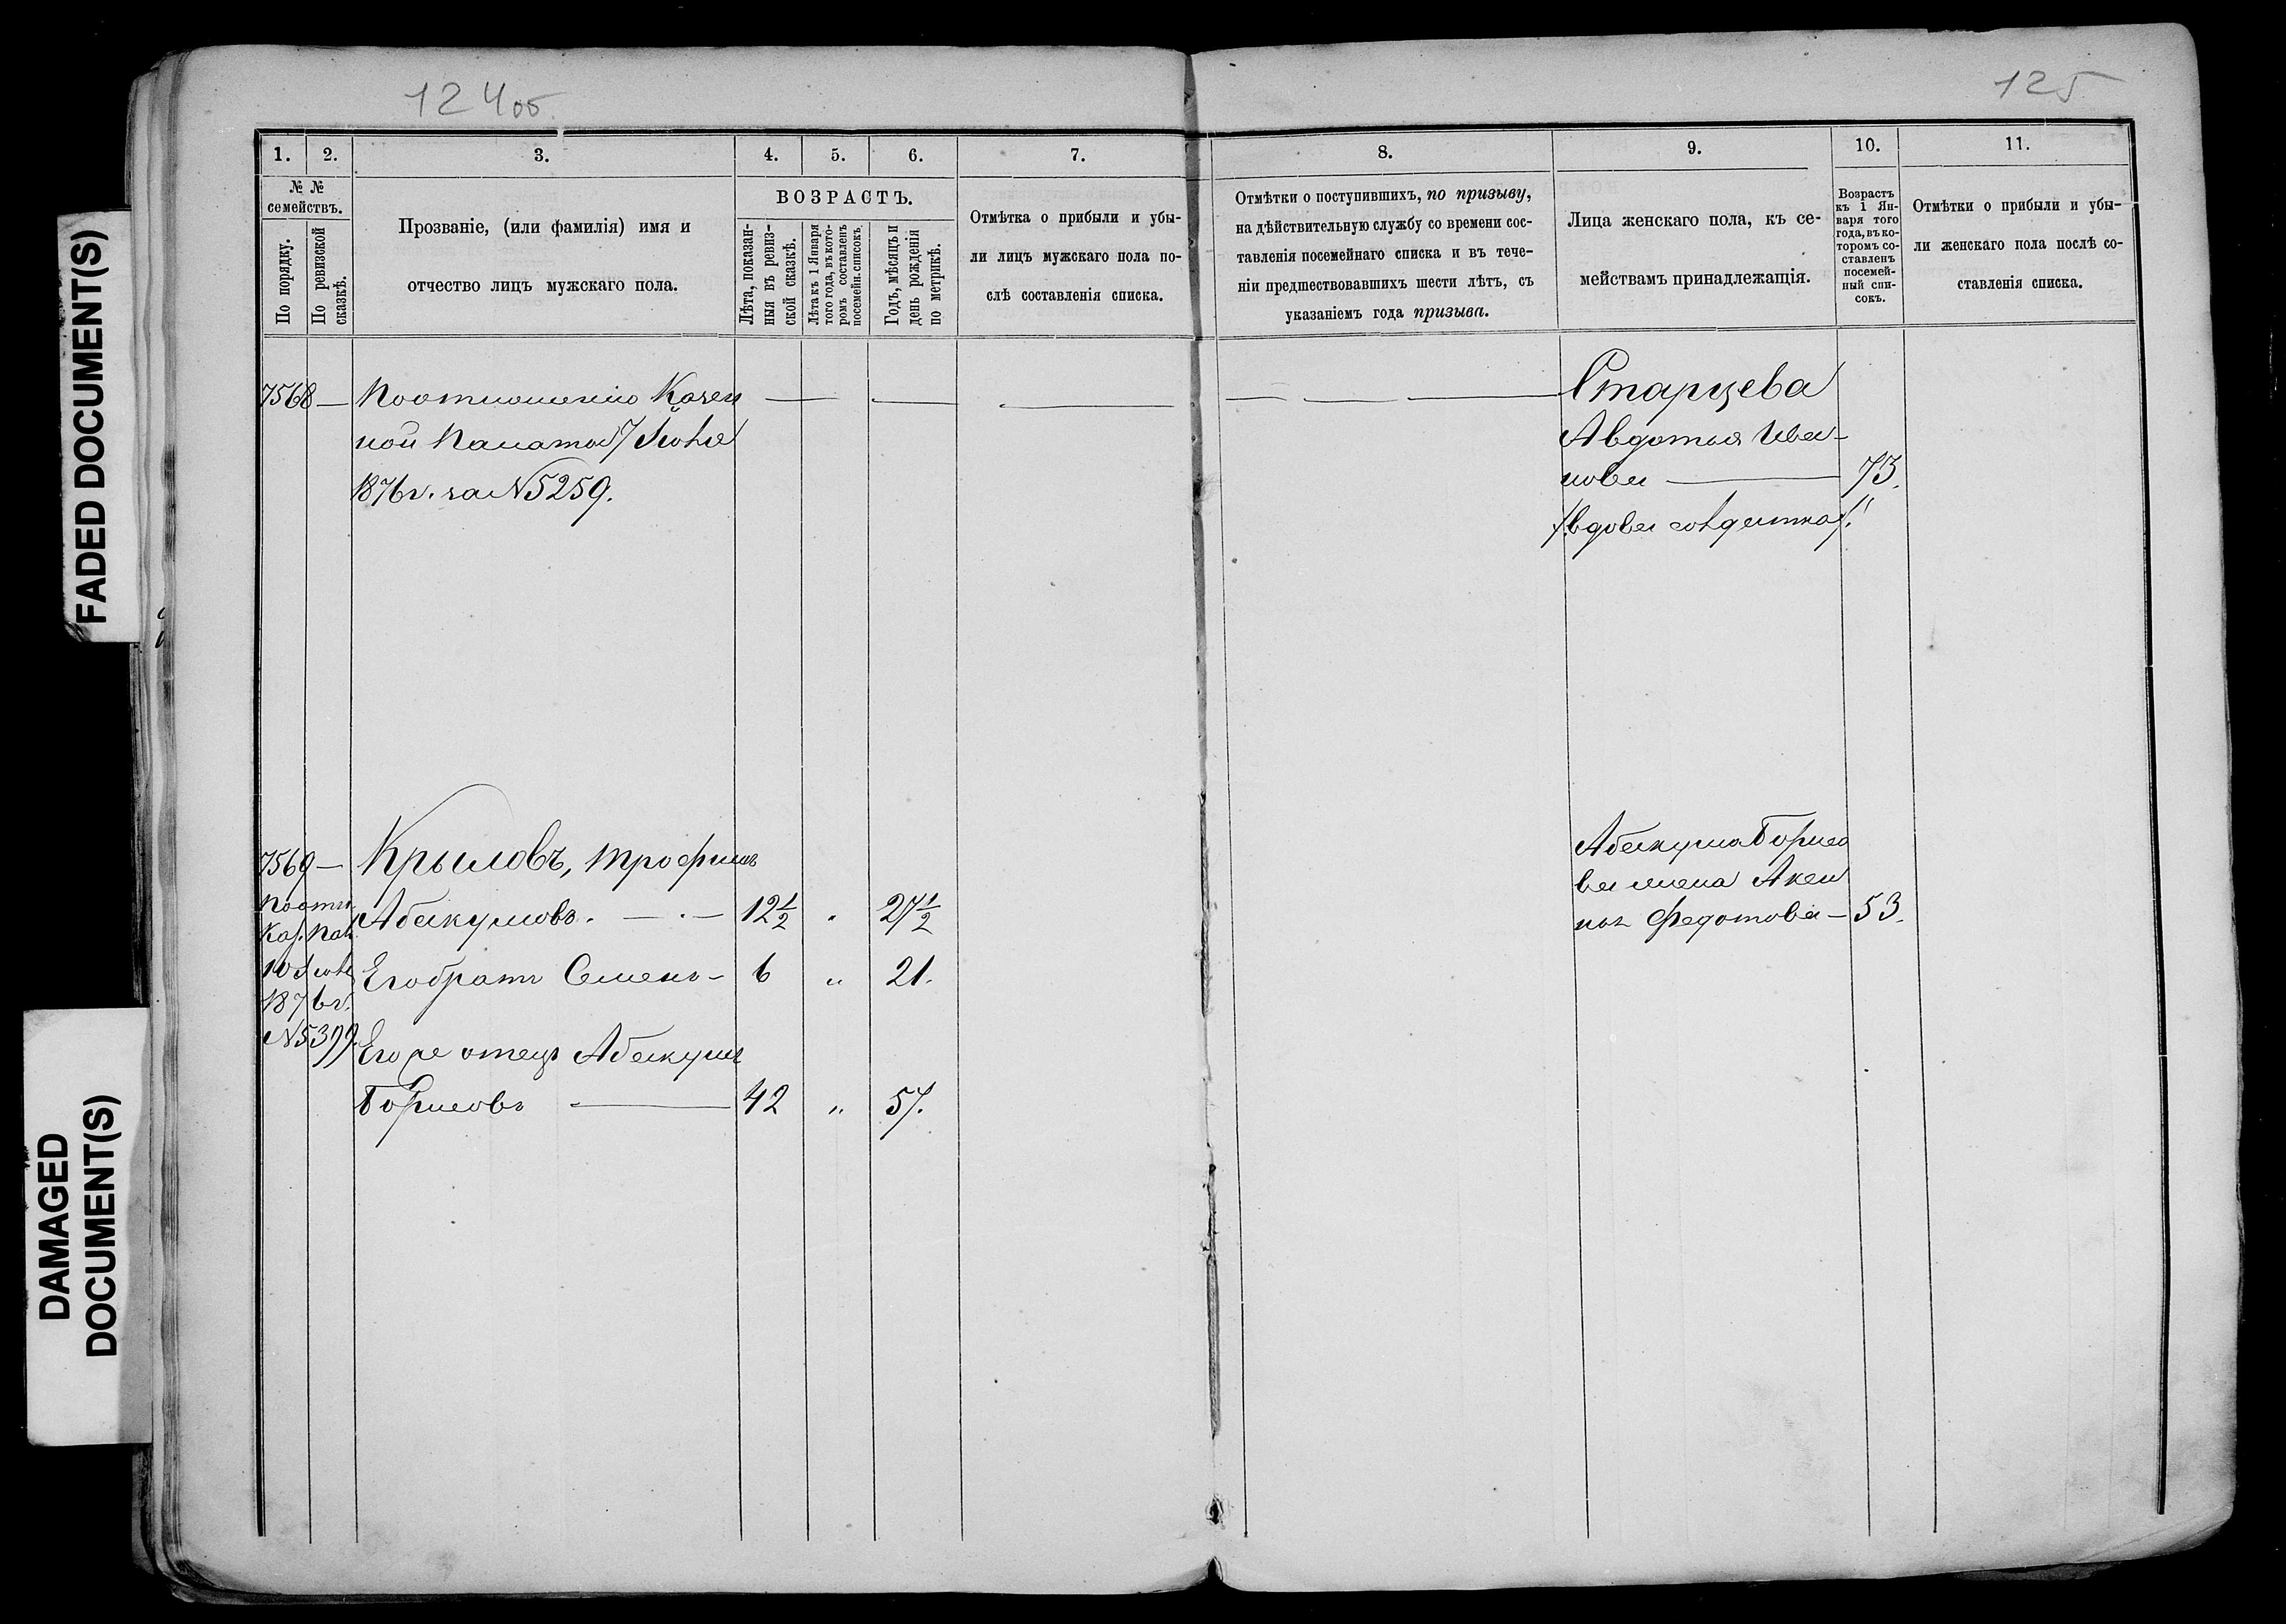 124об.
125
FADED DOCUMENT(S)
DAMAGED
DOCUMENT(S)
1. 2. 3. 4. 5. 6. 7.
№ №
семействъ.
По порядку.
По ревизской
сказкѣ.
Прозваніе, (или фамилія) имя и
отчество лицъ мужскаго пола.
ВОЗРАСТЪ.
Лѣта, показан-
ныя въ ревиз-
ской сказкѣ.
Лѣта къ 1 Января
того года, въ кото-
ромъ составленъ
посемейн. списокъ.
Годъ, мѣсяцъ и
день рожденія
по метрикѣ.
Отмѣтка о прибыли и убы-
ли лицъ мужскаго пола по-
слѣ составленія списка.
8. 9. 10. 11.
Отмѣтки о поступившихъ, по призыву,
на дѣйствительную службу со времени сос-
тавленія посемейнаго списка и въ тече-
ніи предшествовавшихъ шести лѣтъ, съ
указаніемъ года призыва.
Лица женскаго пола, къ се-
мействамъ принадлежащія.
Возрастъ
къ 1 Ян-
варя того
года, въ ко-
торомъ со-
ставленъ
посемей-
ный спи-
сокъ.
Отмѣтки о прибыли и убы-
ли женскаго пола послѣ со-
ставленія списка.
7568 — По отношенію Казен
ной Палаты 7 Іюня
1876 г. за N 5259.
Старцева
Авдотья Ива-
нова — 73.
/вдова солдатка/.
7569 — Крыловъ, Трофимъ
Абакумовъ. — 12 1/2 „ 27 1/2
По отн.
Каз. Пал.
10 Іюня
1876 г.
N 5399.
Его братъ Семенъ — 6 „ 21.
Его же отецъ Абакумъ
Борисовъ — 42 „ 57.
Абакума Борисо
ва жена Акси
нья Федотова — 53.